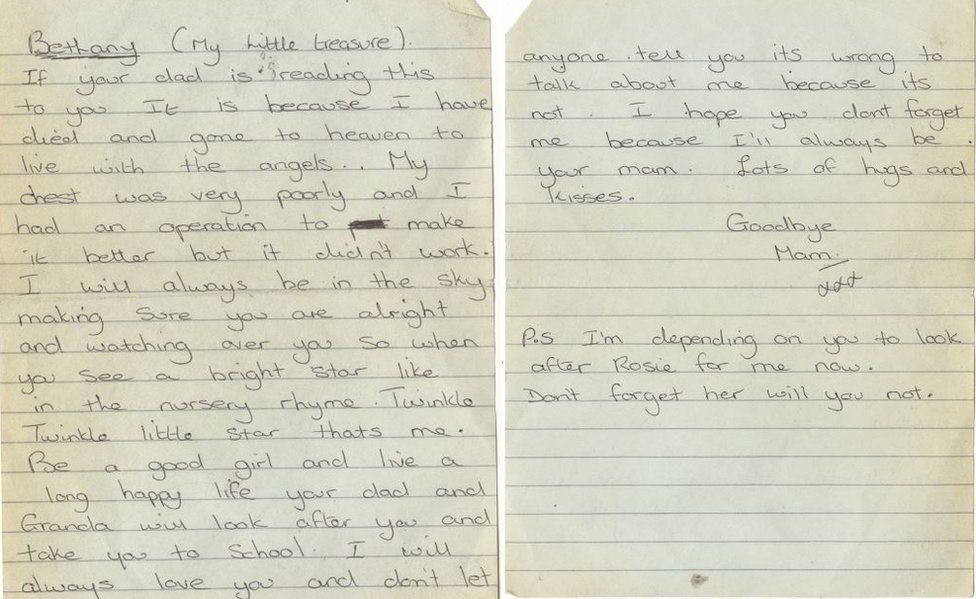 Bethany (My little treasure).
If your dad is reading this
to you It is because I have
died and gone to heaven to
live with the angels.. My
chest was very poorly and I
had an operation to make
it better but it didn't work.
I will always be in the sky
making sure you are alright
and watching over you so when
you see a bright star like
in the nursery rhyme. Twinkle
Twinkle little star thats me.
Be a good girl and live a
long happy life your dad and
Granda will look after you and
take you to school. I will
always love you and don't let
anyone tell you its wrong to
talk about me because its
not. I hope you dont forget
me because I'll always be
your mam. Lots of hugs and
kisses.
Goodbye
Mam.
xxx
P.S I'm depending on you to look
after Rosie for me now.
Don't forget her will you not.